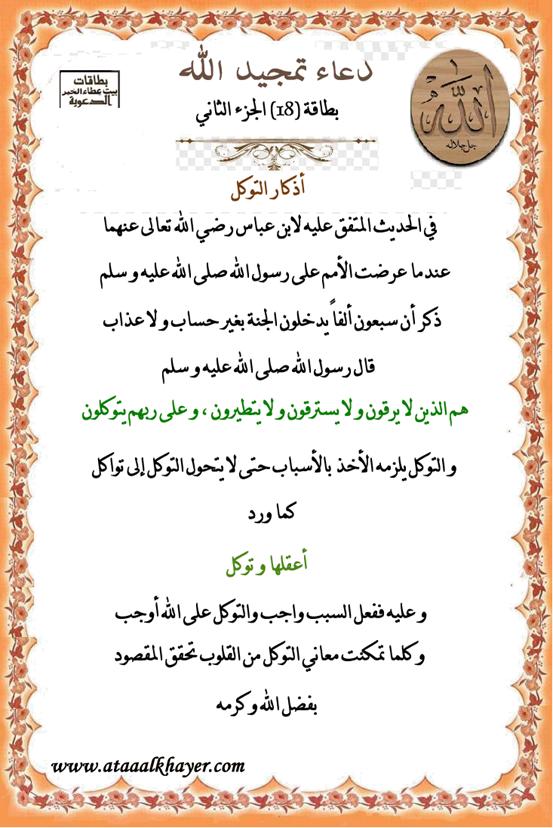 دعاء تمجيد الله
بطاقات
بيت عطاء الخير
الدعوية
الله
جل جلاله
بطاقة (18) الجزء الثاني
أذكار التوكل
في الحديث المتفق عليه لابن عباس رضي الله تعالى عنهما
عندما عرضت الأمم على رسول الله صلى الله عليه وسلم
ذكر أن سبعون ألفاً يدخلون الجنة بغير حساب ولا عذاب
قال رسول الله صلى الله عليه وسلم
هم الذين لا يرقون ولا يسترقون ولا يتطيرون ، وعلى ربهم يتوكلون
والتوكل يلزمه الأخذ بالأسباب حتى لا يتحول التوكل إلى تواكل
كما ورد
أعقلها وتوكل
وعليه ففعل السبب واجب والتوكل على الله أوجب
وكلما تمكنت معاني التوكل من القلوب تحقق المقصود
بفضل الله وكرمه
www.ataaalkhayer.com